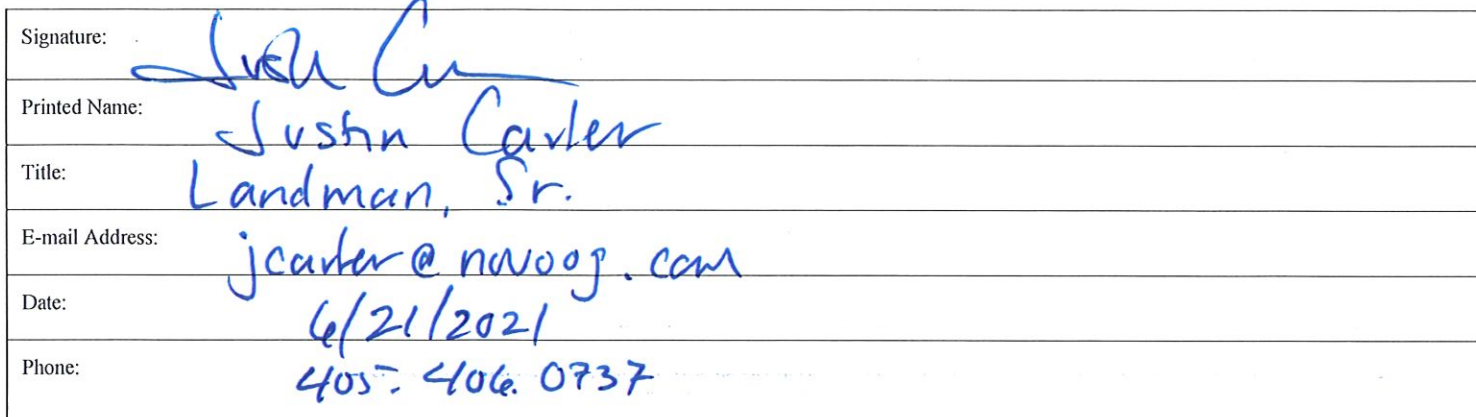 Signature:
Printed Name: Justin Carter
Title: Landman, Sr.
E-mail Address: jcarter@novoog.com
Date: 6/21/2021
Phone: 405-406.0737